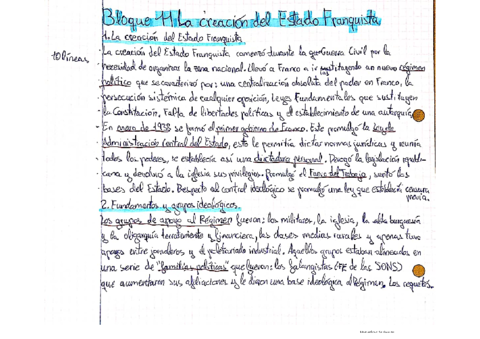 Bloque 11. La creación del Estado Franquista
1. La creación del Estado Franquista
10 líneas
La creación del Estado Franquista, comenzó durante la Guerra Civil por la
necesidad de organizar la zona nacional. Llevó a Franco a ir instituyendo un nuevo régimen
político que se caracterizó por: una centralización absoluta del poder en Franco, la
persecución sistémica de cualquier oposición, Leyes Fundamentales que sustituyen
la Constitución, Falta de libertades políticas y el establecimiento de una autarquía
- En enero de 1938 se formó el primer gobierno de Franco. Este promulgó la Ley de
Administración Central del Estado, esto le permitía dictar normas jurídicas y reunía
todos los poderes, se establecía así una dictadura personal. Derogó la legislación republi-
cana y devolvió a la iglesia sus privilegios. Promulgó el Fuero del Trabajo, sentó las
bases del Estado. Respecto al control ideológico se promulgó una ley que establecía censura
previa.
2. Fundamentos y grupos ideológicos.
Los grupos de apoyo al Régimen fueron: los militares, la iglesia, la alta burguesía
y la oligarquía terrateniente y financiera, las clases medias rurales y apenas tuvo
apoyo entre jornaleros y el proletariado industrial. Aquellos grupos estaban alineados en
una serie de "familias políticas" que fueron: los falangistas (FE de las JONS)
que aumentaron sus afiliaciones y le dieron una base ideológica al Régimen, los requetés